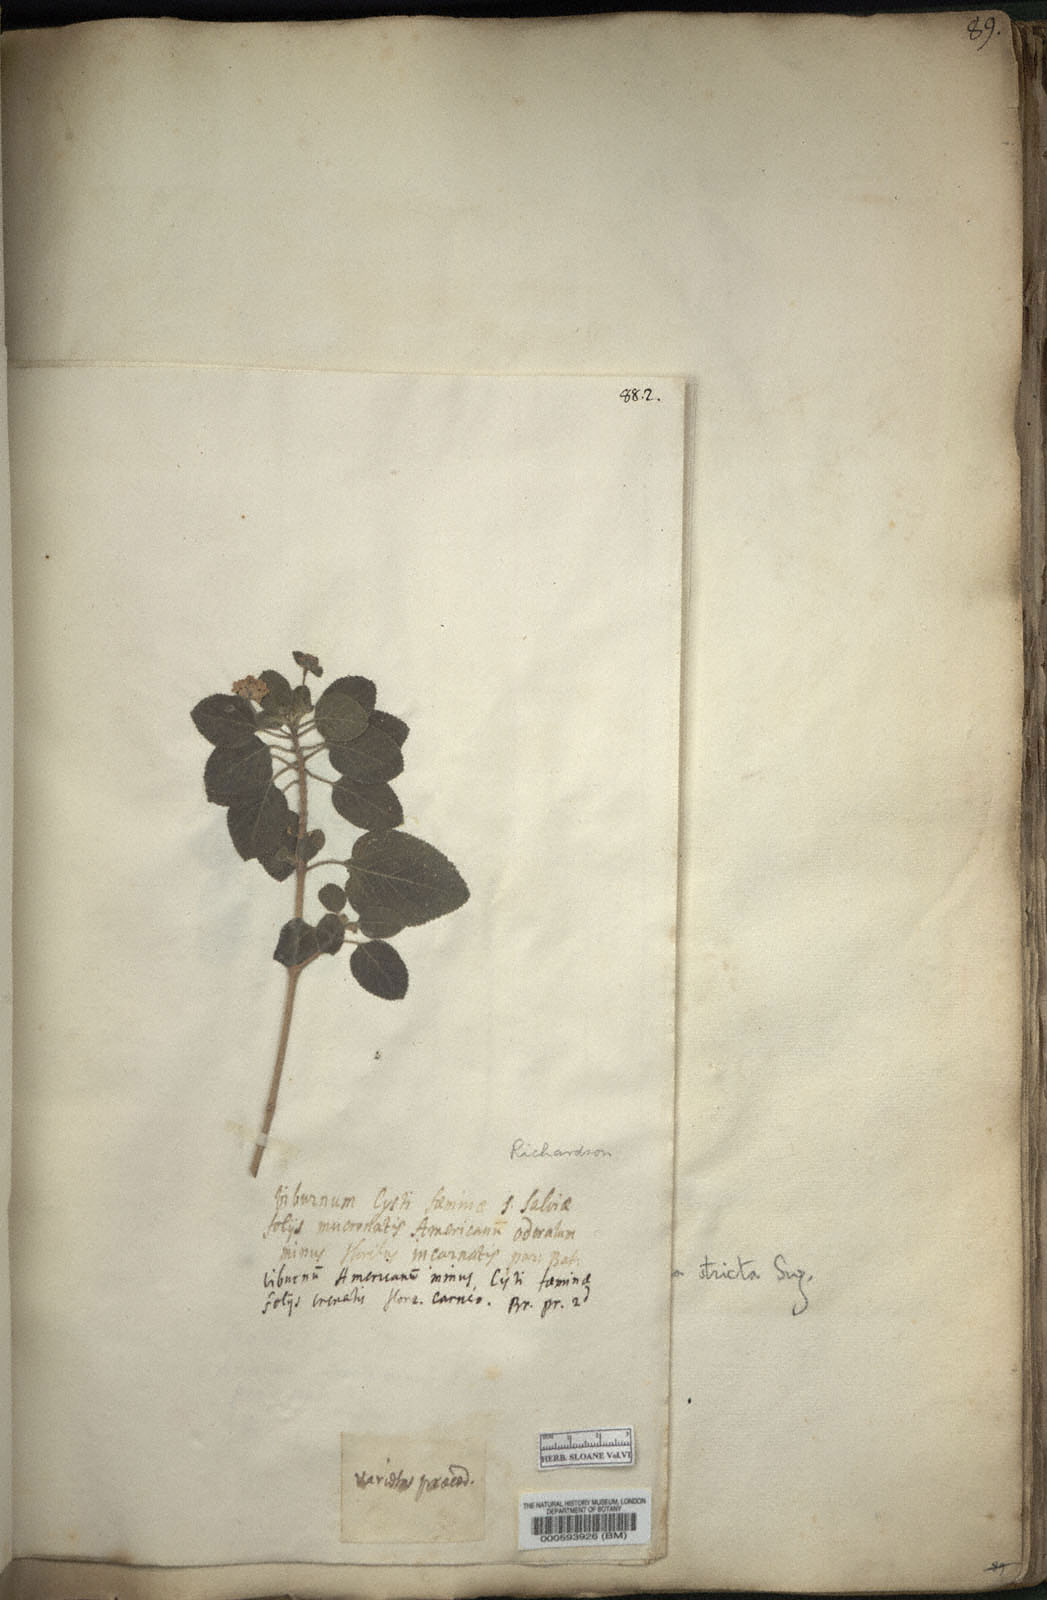 89.
88.2.
Richardson
Viburnum Cysti fæminæ s. Salviæ
folijs mucronatis Americanū odoratum
minus floribus incarnatis par: Bat:
Viburnū Americanū minus, Cysti fæminæ
folijs crenatis flore. carneo. Br. pr. 2d
a stricta Sw.
varietas præced.
HERB. SLOANE Vol.VI
THE NATURAL HISTORY MUSEUM, LONDON
DEPARTMENT OF BOTANY
000593926 (BM)
89